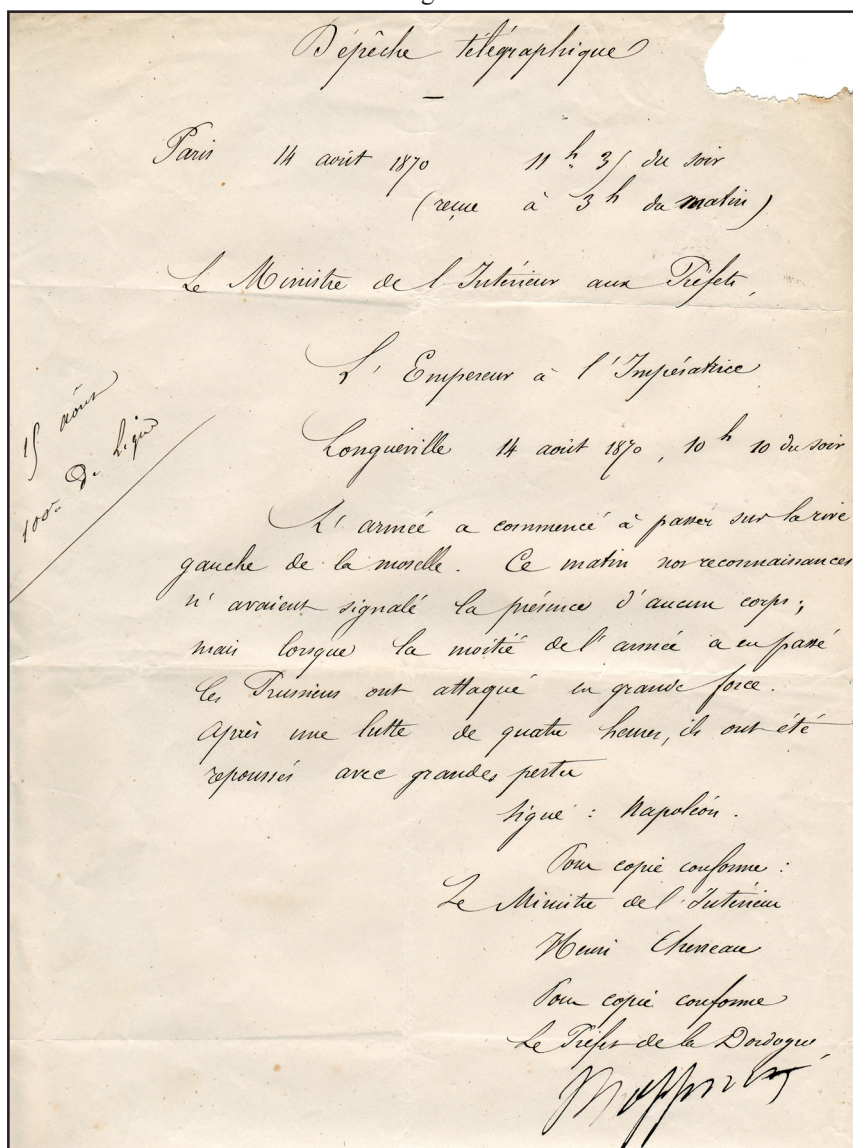 Dépêche télégraphique
Paris 14 août 1870 11 h. 35 du soir
(reçue à 3 h du matin)
Le Ministre de l'Intérieur aux Préfets,
L'Empereur à l'Impératrice
Longueville 14 août 1870, 10 h 10 du soir
15 août
100e De Ligne
L'armée a commencé à passer sur la rive
gauche de la moselle. Ce matin nos reconnaissances
n'avaient signalé la présence d'aucun corps;
mais lorsque la moitié de l'armée a eu passé
les Prussiens ont attaqué en grande force.
Après une lutte de quatre heures, ils ont été
repoussés avec grandes pertes
signé : Napoléon.
Pour copie conforme :
Le Ministre de l'Intérieur
Henri Chevreau
Pour copie conforme
Le Préfet de la Dordogne,